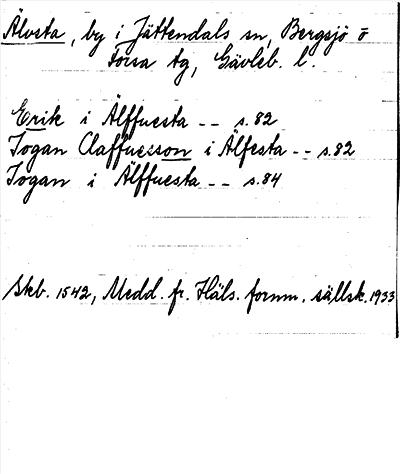 Älvsta, by i Jättendals sn, Bergsjö o
Forsa tg, Gävleb. l.
Erik i Älffuesta -- s.82
Jogan Claffuesson i Älfesta -- s.82
Jogan i Älffuesta -- s.84
Skb. 1542, Medd. fr. Häls. fornm. sällsk. 1933